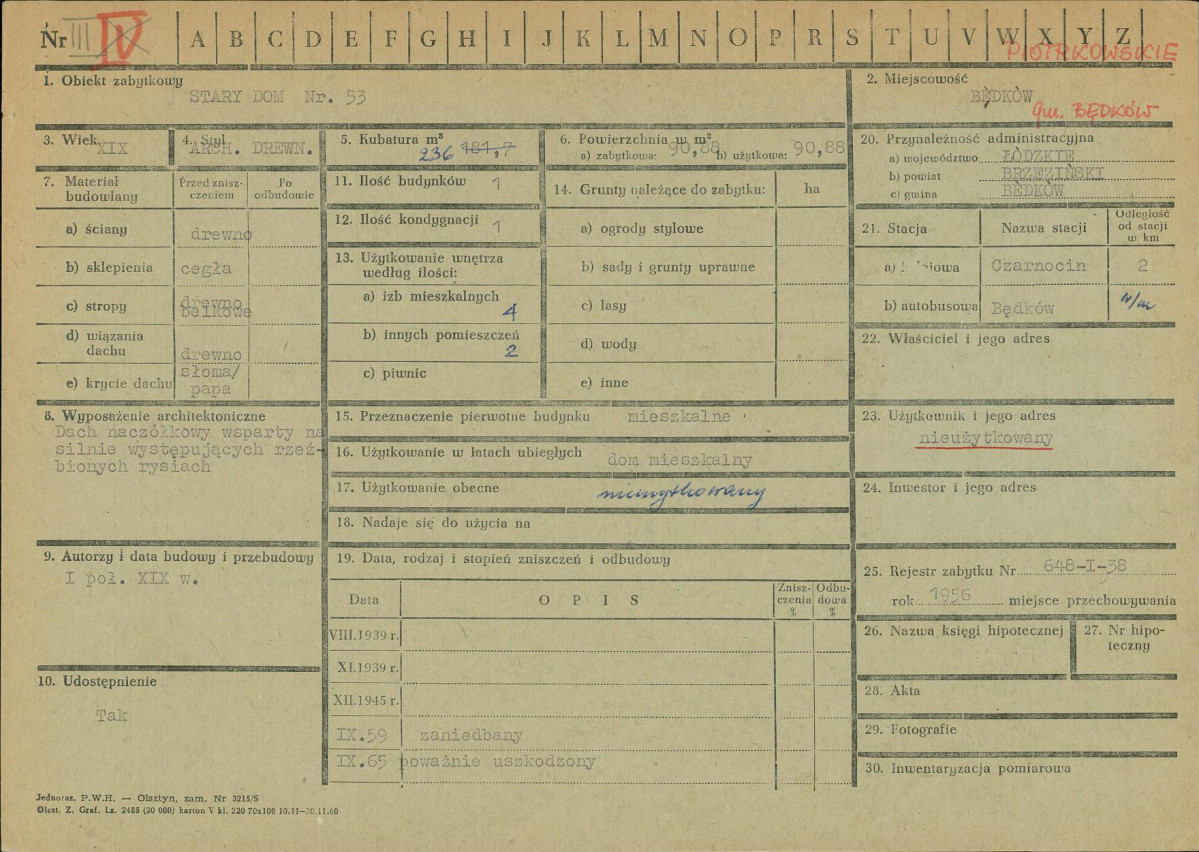 Nr III IV A B C D E F G H I J K L M N O P R S T U V W X Y Z
PIOTRKOWSKIE
1. Obiekt zabytkowy
STARY DOM Nr. 53
2. Miejscowość
BĘDKÓW
gm. BĘDKÓW
3. Wiek XIX
4. Styl ARCH. DREWN.
5. Kubatura m³
236 181,7
6. Powierzchnia w m²
a) zabytkowa: 90,88 b) użytkowa: 90,88
7. Materiał budowlany
Przed zniszczeniem
Po odbudowie
a) ściany drewno
b) sklepienia cegła
c) stropy drewno belkowe
d) wiązania dachu drewno
e) krycie dachu słoma/papa
8. Wyposażenie architektoniczne
Dach naczółkowy wsparty na
silnie występujących rzeź-
bionych rysiach
9. Autorzy i data budowy i przebudowy
I poł. XIX w.
10. Udostępnienie
Tak
11. Ilość budynków 1
12. Ilość kondygnacji 1
13. Użytkowanie wnętrza
według ilości:
a) izb mieszkalnych
4
b) innych pomieszczeń
2
c) piwnic
14. Grunty należące do zabytku: ha
a) ogrody stylowe
b) sady i grunty uprawne
c) lasy
d) wody
e) inne
15. Przeznaczenie pierwotne budynku mieszkalne
16. Użytkowanie w latach ubiegłych dom mieszkalny
17. Użytkowanie obecne nieużytkowany
18. Nadaje się do użycia na
19. Data, rodzaj i stopień zniszczeń i odbudowy
Data OPIS Zniszczenia % Odbudowa %
VIII.1939 r.
XI.1939 r.
XII.1945 r.
IX.59 zaniedbany
IX.65 poważnie uszkodzony
20. Przynależność administracyjna
a) województwo ŁÓDZKIE
b) powiat BRZEZIŃSKI
c) gmina BĘDKÓW
21. Stacja Nazwa stacji Odległość
od stacji
w km
a) Czarnocin 2
b) autobusowa Będków n/m
22. Właściciel i jego adres
23. Użytkownik i jego adres
nieużytkowany
24. Inwestor i jego adres
25. Rejestr zabytku Nr 648-I-38
rok 1956 miejsce przechowywania
26. Nazwa księgi hipotecznej
27. Nr hipo-
teczny
28. Akta
29. Fotografie
30. Inwentaryzacja pomiarowa
Jednoraz. P.W.H. — Olsztyn, zam. Nr 3215/S
Olszt. Z. Graf. Lz. 2455 (30 000) karton V kl. 220 70x100 10.11-30.11.60